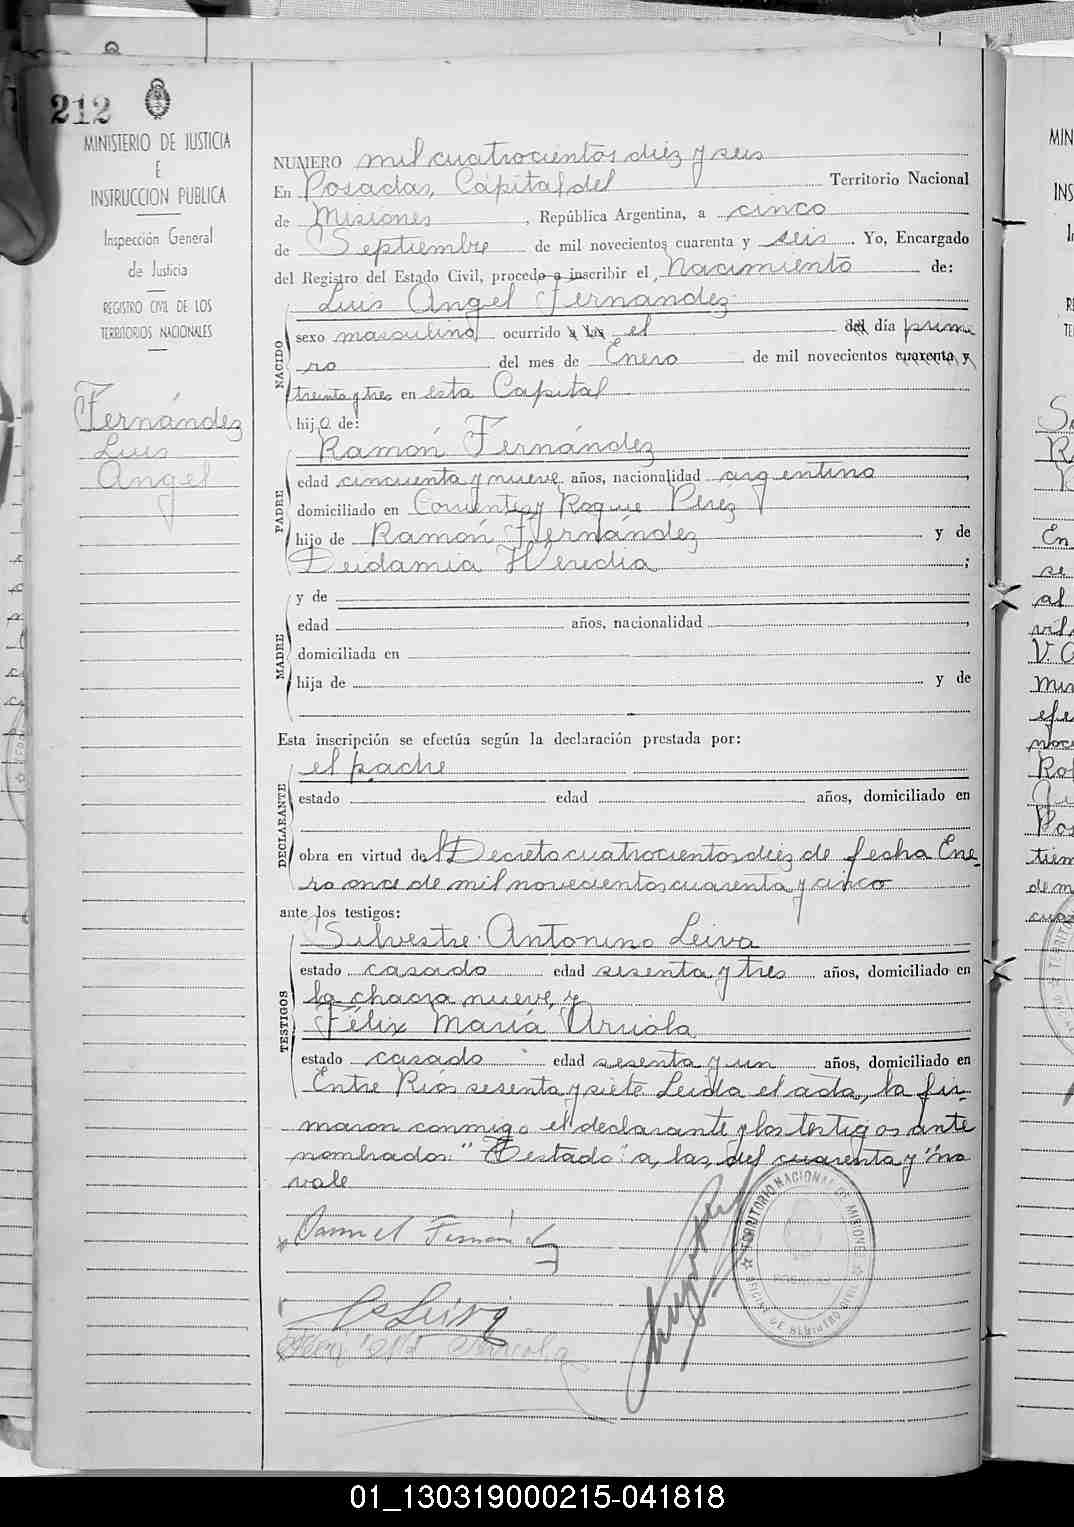 212
MINISTERIO DE JUSTICIA
E
INSTRUCCION PUBLICA
Inspección General
de Justicia
REGISTRO CIVIL DE LOS
TERRITORIOS NACIONALES
Fernández
Luis
Angel
NUMERO mil cuatrocientos diez y seis
En Posadas, Capital del Territorio Nacional
de Misiones, República Argentina, a cinco
de Septiembre de mil novecientos cuarenta y seis. Yo, Encargado
del Registro del Estado Civil, procedo a inscribir el Nacimiento de:
Luis Angel Fernández
NACIDO
sexo masculino ocurrido a las el del día prime
ro del mes de Enero de mil novecientos cuarenta y
treinta y tres en esta Capital
hijo de:
Ramón Fernández
PADRE
edad cincuenta y nueve años, nacionalidad argentino,
domiciliado en Corrientes y Roque Pérez
hijo de Ramón Fernández y de
Deidamia Heredia;
MADRE
y de
edad años, nacionalidad,
domiciliada en
hija de y de
Esta inscripción se efectúa según la declaración prestada por:
el padre
DECLARANTE
estado edad años, domiciliado en
obra en virtud del Decreto cuatrocientos diez de fecha Ene-
ro once de mil novecientos cuarenta y cinco
ante los testigos:
Silvestre Antonino Leiva
TESTIGOS
estado casado edad sesenta y tres años, domiciliado en
la chacra nueve, y
Félix María Arriola
estado casado edad sesenta y un años, domiciliado en
Entre Ríos sesenta y siete Leída el acta, la fir-
maron conmigo el declarante y los testigos ante
nombrados: "Testado" a, las, del cuarenta y "no
vale
TERRITORIO NACIONAL DE MISIONES
OFICINA DE REGISTRO CIVIL
POSADAS
01_130319000215-041818